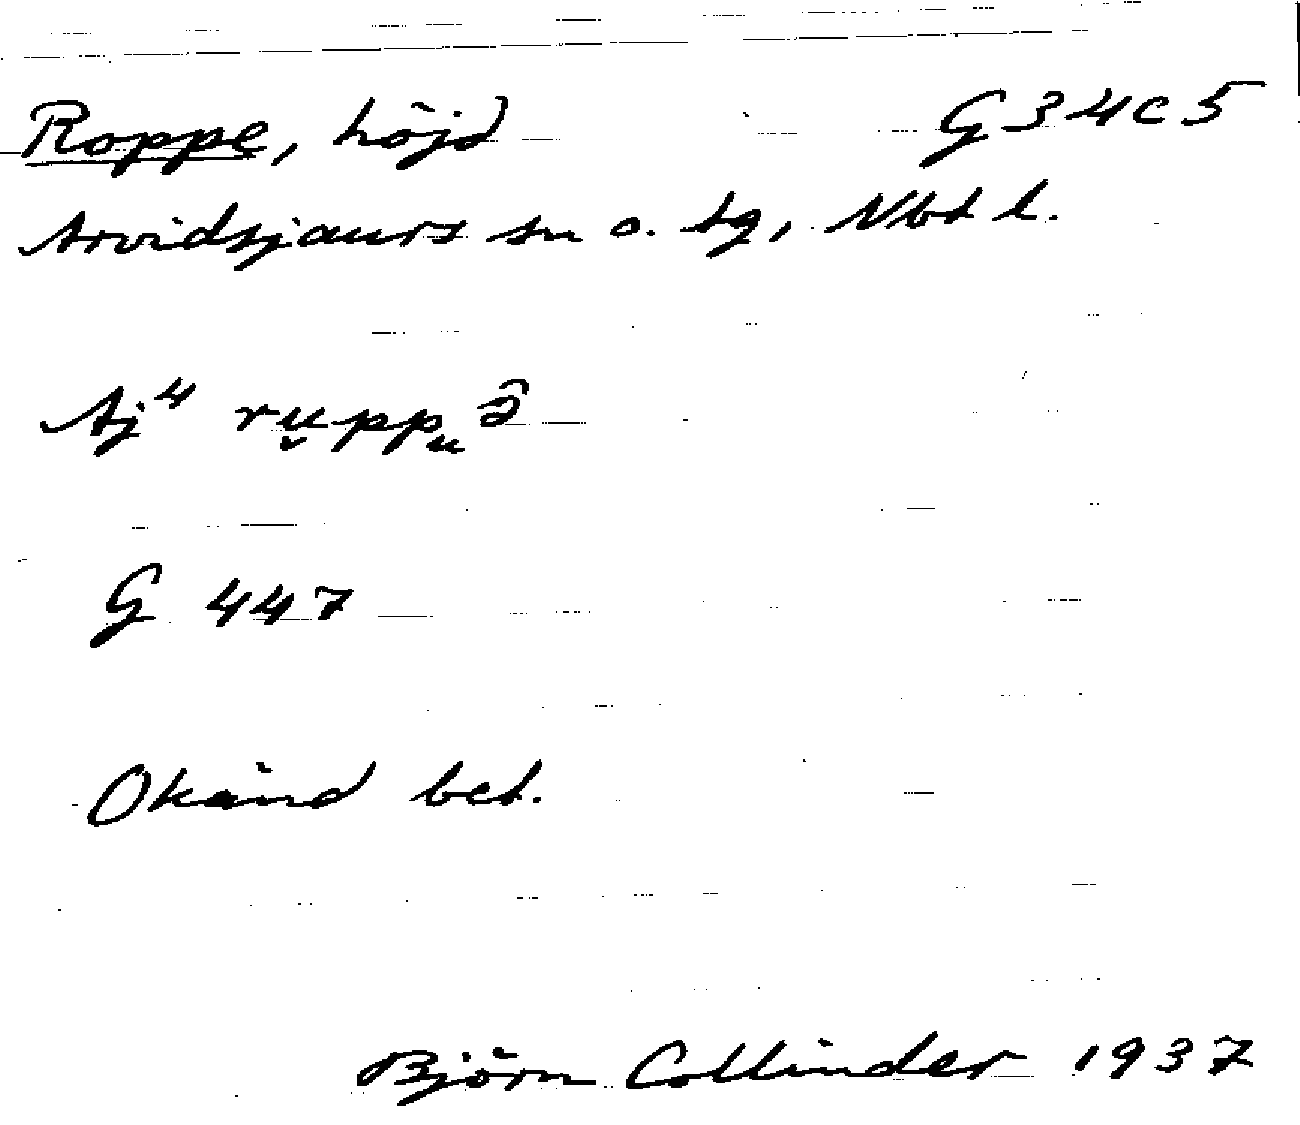 Roppe, höjd G34c5
Arvidsjaurs sn o. tg, Nbt l.
Aj⁴ ru̬ppᵤə̂
G 447
Okänd bet.
Björn Collinder 1937